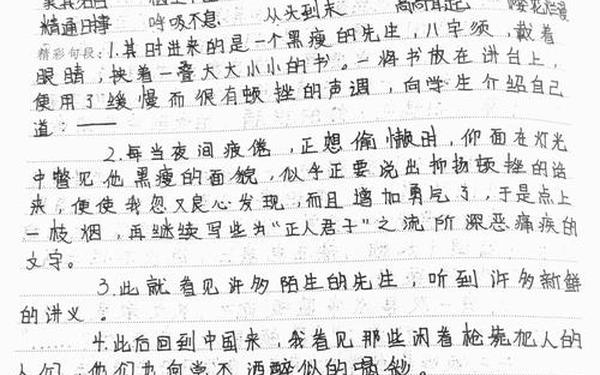 呼吸不息 从头到末
精彩句段:1.其时进来的是一个黑瘦的先生,八字须,戴着
眼睛,挟着一叠大大小小的书。一将书放在讲台上,
便用了缓慢而很有顿挫的声调,向学生介绍自己
道:——
2.每当夜间疲倦,正想偷懒时,仰面在灯光
中瞥见他黑瘦的面貌,似乎正要说出抑扬顿挫的话
来,便使我忽又良心发现,而且增加勇气了,于是点上
一枝烟,再继续写些为“正人君子”之流所深恶痛疾的
文字。
3.此就看见许多陌生的先生,听到许多新鲜
的讲义。
4.此后回到中国来,我看见那些闲看枪毙犯人的
人们,他们也何尝不酒醉似的喝